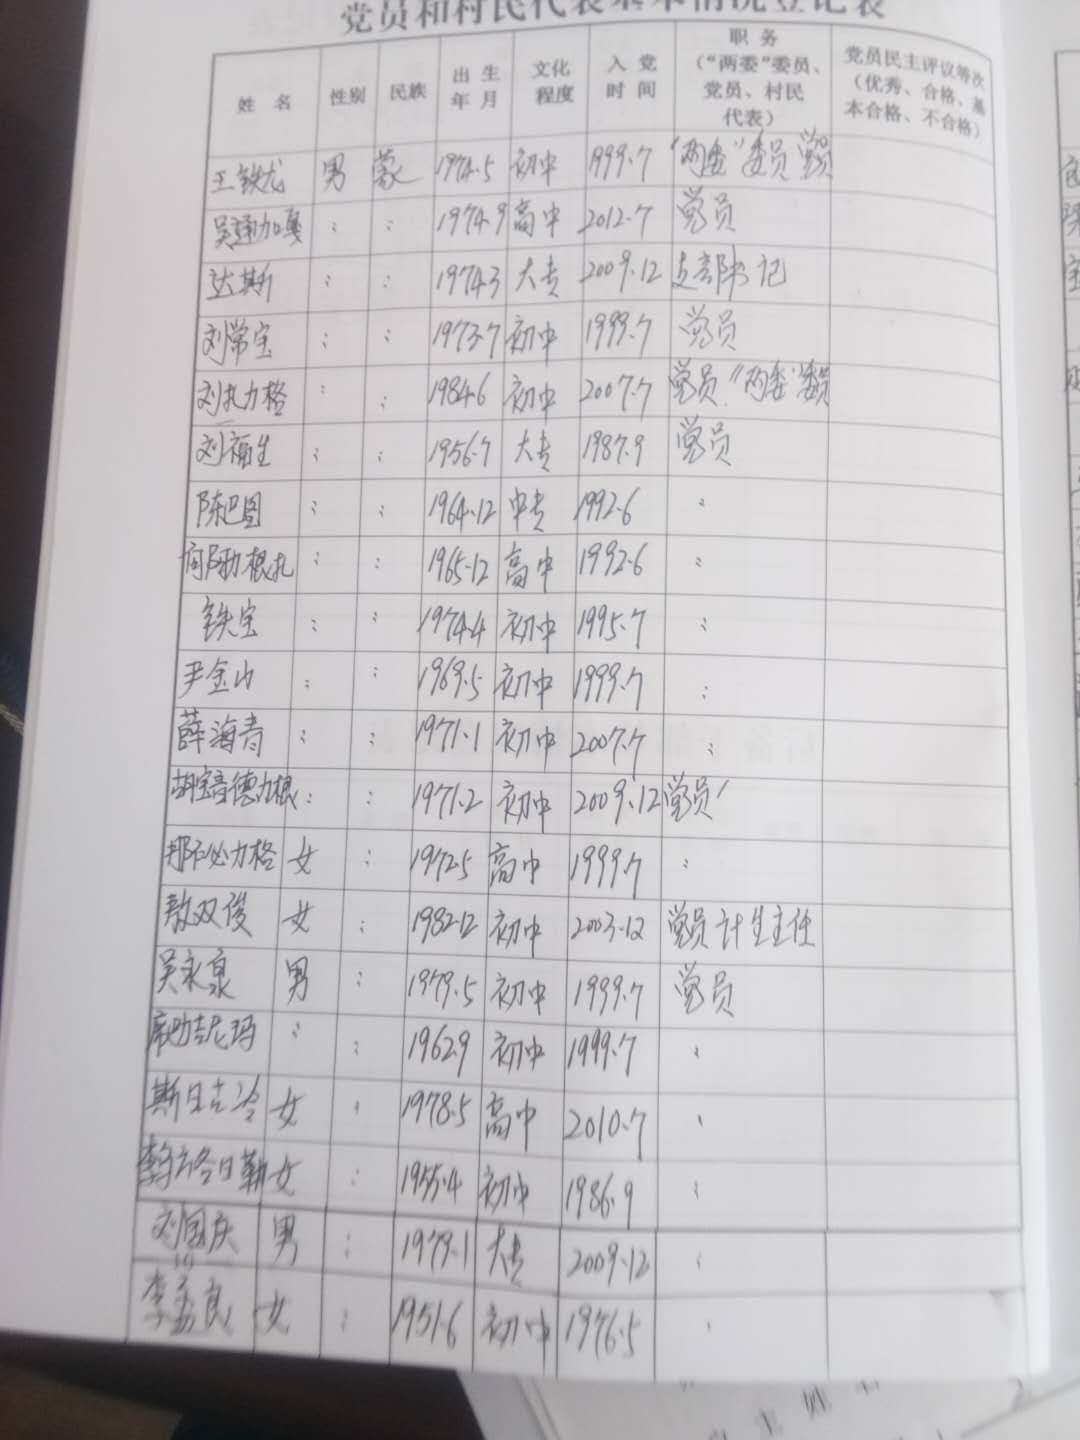 党员和村民代表基本情况登记表
姓 名 性别 民族 出 生 年 月 文化 程度 入 党 时 间 职 务 （“两委”委员、党员、村民代表） 党员民主评议等次（优秀、合格、基本合格、不合格）
王铁龙 男 蒙 1974.5 初中 1999.7 “两委”委员 党员
吴 加 : : 1974.9 高中 2012.7 党员
达斯 : : 1974.3 大专 2009.12 支部书记
刘常宝 : : 1973.7 初中 1999.7 党员
刘扎力格 : : 1984.6 初中 2007.7 党员“两委”委员
刘福生 : : 1956.7 大专 1987.9 党员
陈巴图 : : 1964.12 中专 1992.6 :
根扎 : : 1965.12 高中 1992.6 :
铁宝 : : 1974.4 初中 1995.7 :
尹金山 : : 1969.5 初中 1999.7 :
薛海青 : : 1971.1 初中 2007.7 :
胡宝音德力根 : : 1971.2 初中 2009.12 党员
那 力格 女 : 1972.5 高中 1999.7 :
敖双俊 女 : 1982.12 初中 2003.12 党员 计生主任
吴永泉 男 : 1979.5 初中 1999.7 党员
吉尼玛 : : 1962.9 初中 1999.7 :
斯日古冷 女 : 1978.5 高中 2010.7 :
日勒 女 : 1955.4 初中 1986.9 :
刘国庆 男 : 1979.1 大专 2009.12 :
李孟良 女 : 1951.6 初中 1976.5 :